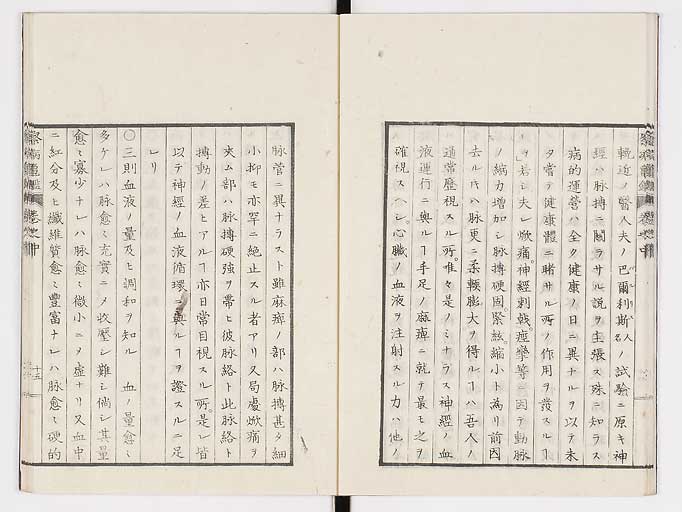 輓近ノ醫人夫ノ巴爾利斯人名ノ試驗ニ原キ神
經ハ脉搏ニ關ラサル說ヲ主張ス殊ニ知ラス
病的運營ハ全ク健康ノ日ニ異ナルヲ以テ未
タ嘗テ健康體ニ睹サル所ノ作用ヲ發スルヿ
ヲ若シ夫レ焮痛。神經刺戟。痙攣等ニ因テ動脉
ノ縮力增加シ脉搏硬固。緊絃。縮小ト為リ前因
去ル片ハ脉更ニ柔軟膨大ヲ得ルヿハ吾人ノ
通常歷視スル所。唯々是ノミナラス神經ノ血
液運行ニ與ルヿ手足ノ麻痺ニ就テ最モ之ヲ
確視スヘシ。心臟ノ血液ヲ注射スル力ハ他ノ
脉管ニ異ナラスト雖麻痺ノ部ハ脉搏甚タ細
小抑モ亦罕ニ絶止スル者アリ又局處焮痛ヲ
夾ム部ハ脉搏硬强ヲ帶ヒ彼脉絡ト此脉絡ト
搏動ノ差ヒアルヿ亦日常目視スル所。是レ皆
以テ神經ノ血液循環ニ與ルヿヲ證スルニ足
レリ
〇三則血液ノ量及ヒ調和ヲ知ル 血ノ量愈ミ
多ケレハ脉愈ミ充實ニメ收壓シ難シ倘シ其量
愈ミ寡少ナレハ脉愈ミ微小ニメ虛ナリ又血中
ニ紅分及ヒ纖維質愈ミ豐富ナレハ脉愈ミ硬的
卷之中
十五